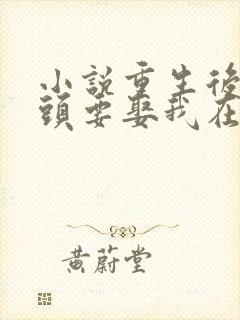 小說重生後
頭要娶我在
黃蔚堂